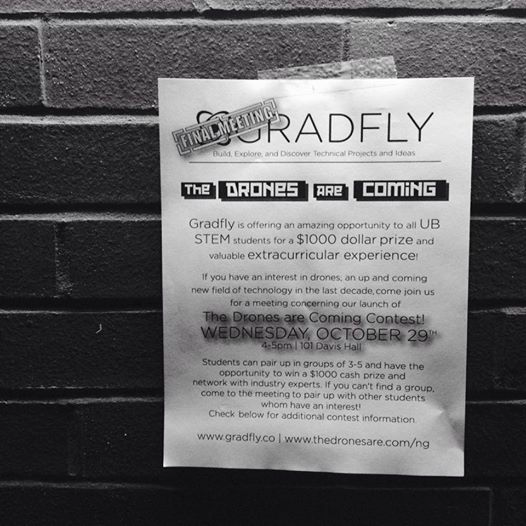 FINAL MEETING
GRADFLY
Build, Explore, and Discover Technical Projects and Ideas
THE DRONES ARE COMING
Gradfly is offering an amazing opportunity to all UB
STEM students for a $1000 dollar prize and
valuable extracurricular experience!
If you have an interest in drones, an up and coming
new field of technology in the last decade, come join us
for a meeting concerning our launch of
The Drones are Coming Contest!
WEDNESDAY, OCTOBER 29TH
4-5pm | 101 Davis Hall
Students can pair up in groups of 3-5 and have the
opportunity to win a $1000 cash prize and
network with industry experts. If you can't find a group,
come to the meeting to pair up with other students
whom have an interest!
Check below for additional contest information.
www.gradfly.co | www.thedronesare.com/ng